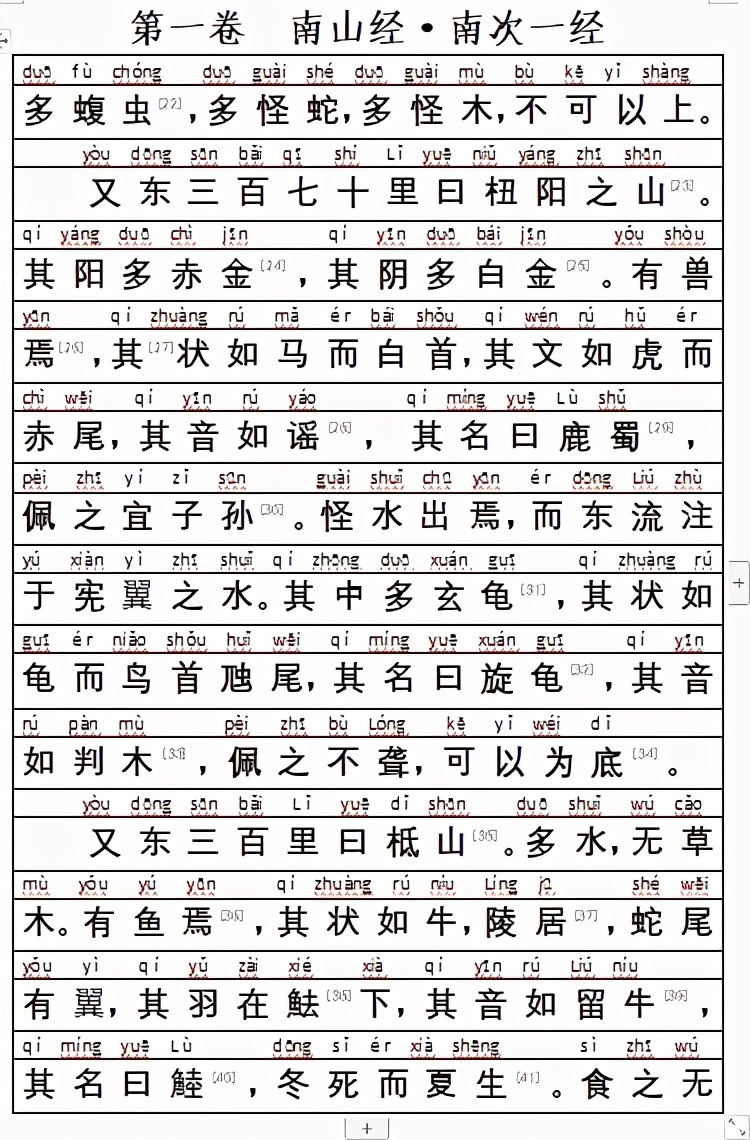 第一卷 南山经·南次一经
duō fù chóng duō guài shé duō guài mù bù kě yǐ shàng
多蝮虫[22],多怪蛇,多怪木,不可以上。
yòu dōng sān bǎi qī shí Lǐ yuē niǔ yáng zhī shān
又东三百七十里曰杻阳之山[23]。
qí yáng duō chì jīn qí yīn duō bái jīn yǒu shòu
其阳多赤金[24],其阴多白金[25]。有兽
yān qí zhuàng rú mǎ ér bái shǒu qí wén rú hǔ ér
焉[26],其[27]状如马而白首,其文如虎而
chì wěi qí yīn rú yáo qí míng yuē Lù shǔ
赤尾,其音如谣[28],其名曰鹿蜀[29],
pèi zhī yí zǐ sūn guài shuǐ chū yān ér dōng Liú zhù
佩之宜子孙[30]。怪水出焉,而东流注
yú xiàn yì zhī shuǐ qí zhōng duō xuán guī qí zhuàng rú
于宪翼之水。其中多玄龟[31],其状如
guī ér niǎo shǒu huǐ wěi qí míng yuē xuán guī qí yīn
龟而鸟首虺尾,其名曰旋龟[32],其音
rú pàn mù pèi zhī bù Lóng kě yǐ wéi dǐ
如判木[33],佩之不聋,可以为底[34]。
yòu dōng sān bǎi Lǐ yuē dǐ shān duō shuǐ wú cǎo
又东三百里曰柢山[35]。多水,无草
mù yǒu yú yān qí zhuàng rú niú Líng jū shé wěi
木。有鱼焉[36],其状如牛,陵居[37],蛇尾
yǒu yì qí yǔ zài xié xià qí yīn rú Liú niú
有翼,其羽在魼[38]下,其音如留牛[39],
qí míng yuē Lù dōng sǐ ér xià shēng sì zhī wú
其名曰鯥[40],冬死而夏生[41]。食之无